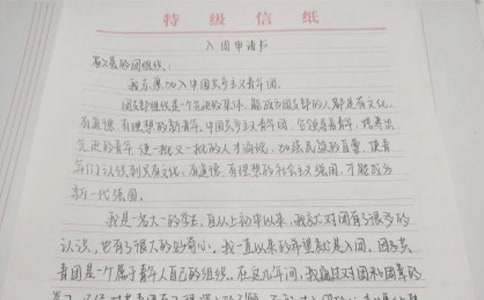 特级信纸
入团申请书
敬爱的团组织：
我志愿加入中国共产主义青年团。
团支部组织是一个先进的集体，能成为团支部的人都是有文化、
有道德、有理想的新青年。中国共产主义青年团，它领着青年，培养出
先进的青年，使一批又一批的人才涌现，加强民族的自尊，使青
年们认识到只有文化、有道德、有理想的社会主义强国，才能成为
新一代强国。
我是一名大一的学生，自从上初中以来，我就对团有了很多的
认识，也有了很大的好奇心。我一直以来的希望就是入团。团
青团是一个属于青年人自己的组织。在这几年间，我对团和团章的